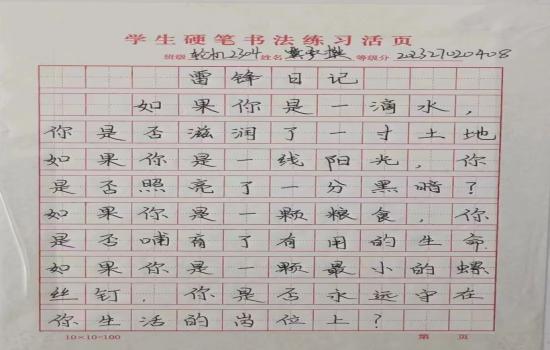 学生硬笔书法练习活页
班级 轮机2304 姓名 等级分 202327020408
雷锋日记
如果你是一滴水，
你是否滋润了一寸土地
如果你是一线阳光，你
是否照亮了一分黑暗？
如果你是一颗粮食，你
是否哺育了有用的生命
如果你是一颗最小的螺
丝钉，你是否永远守在
你生活的岗位上？
10×10=100 第 页